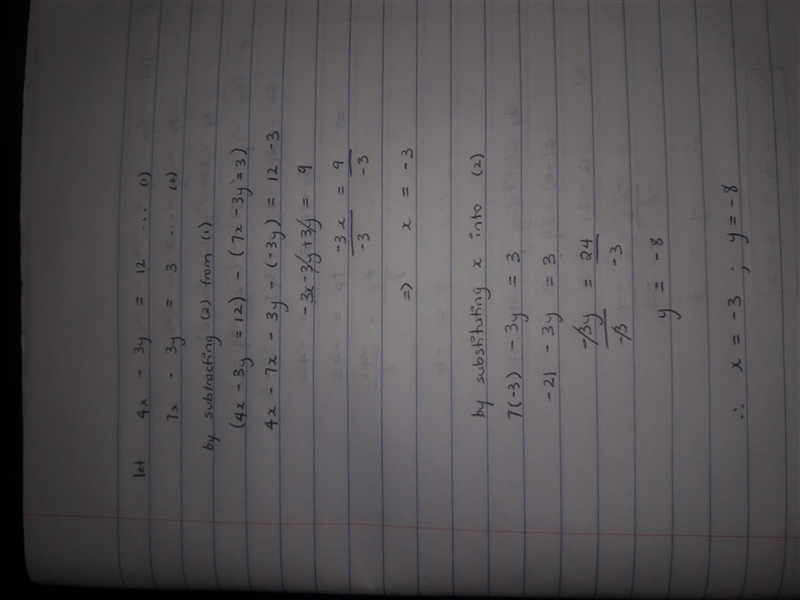 let 4x - 3y = 12 ... (1)
7x - 3y = 3 .... (2)
by subtracting (2) from (1)
(4x - 3y = 12) - (7x - 3y = 3)
4x - 7x - 3y - (-3y) = 12 - 3
-3x - 3y + 3y = 9
-3x = 9
-3 -3
=> x = -3
by substituting x into (2)
7(-3) - 3y = 3
-21 - 3y = 3
-3y = 24
-3 -3
y = -8
∴ x = -3 ; y = -8